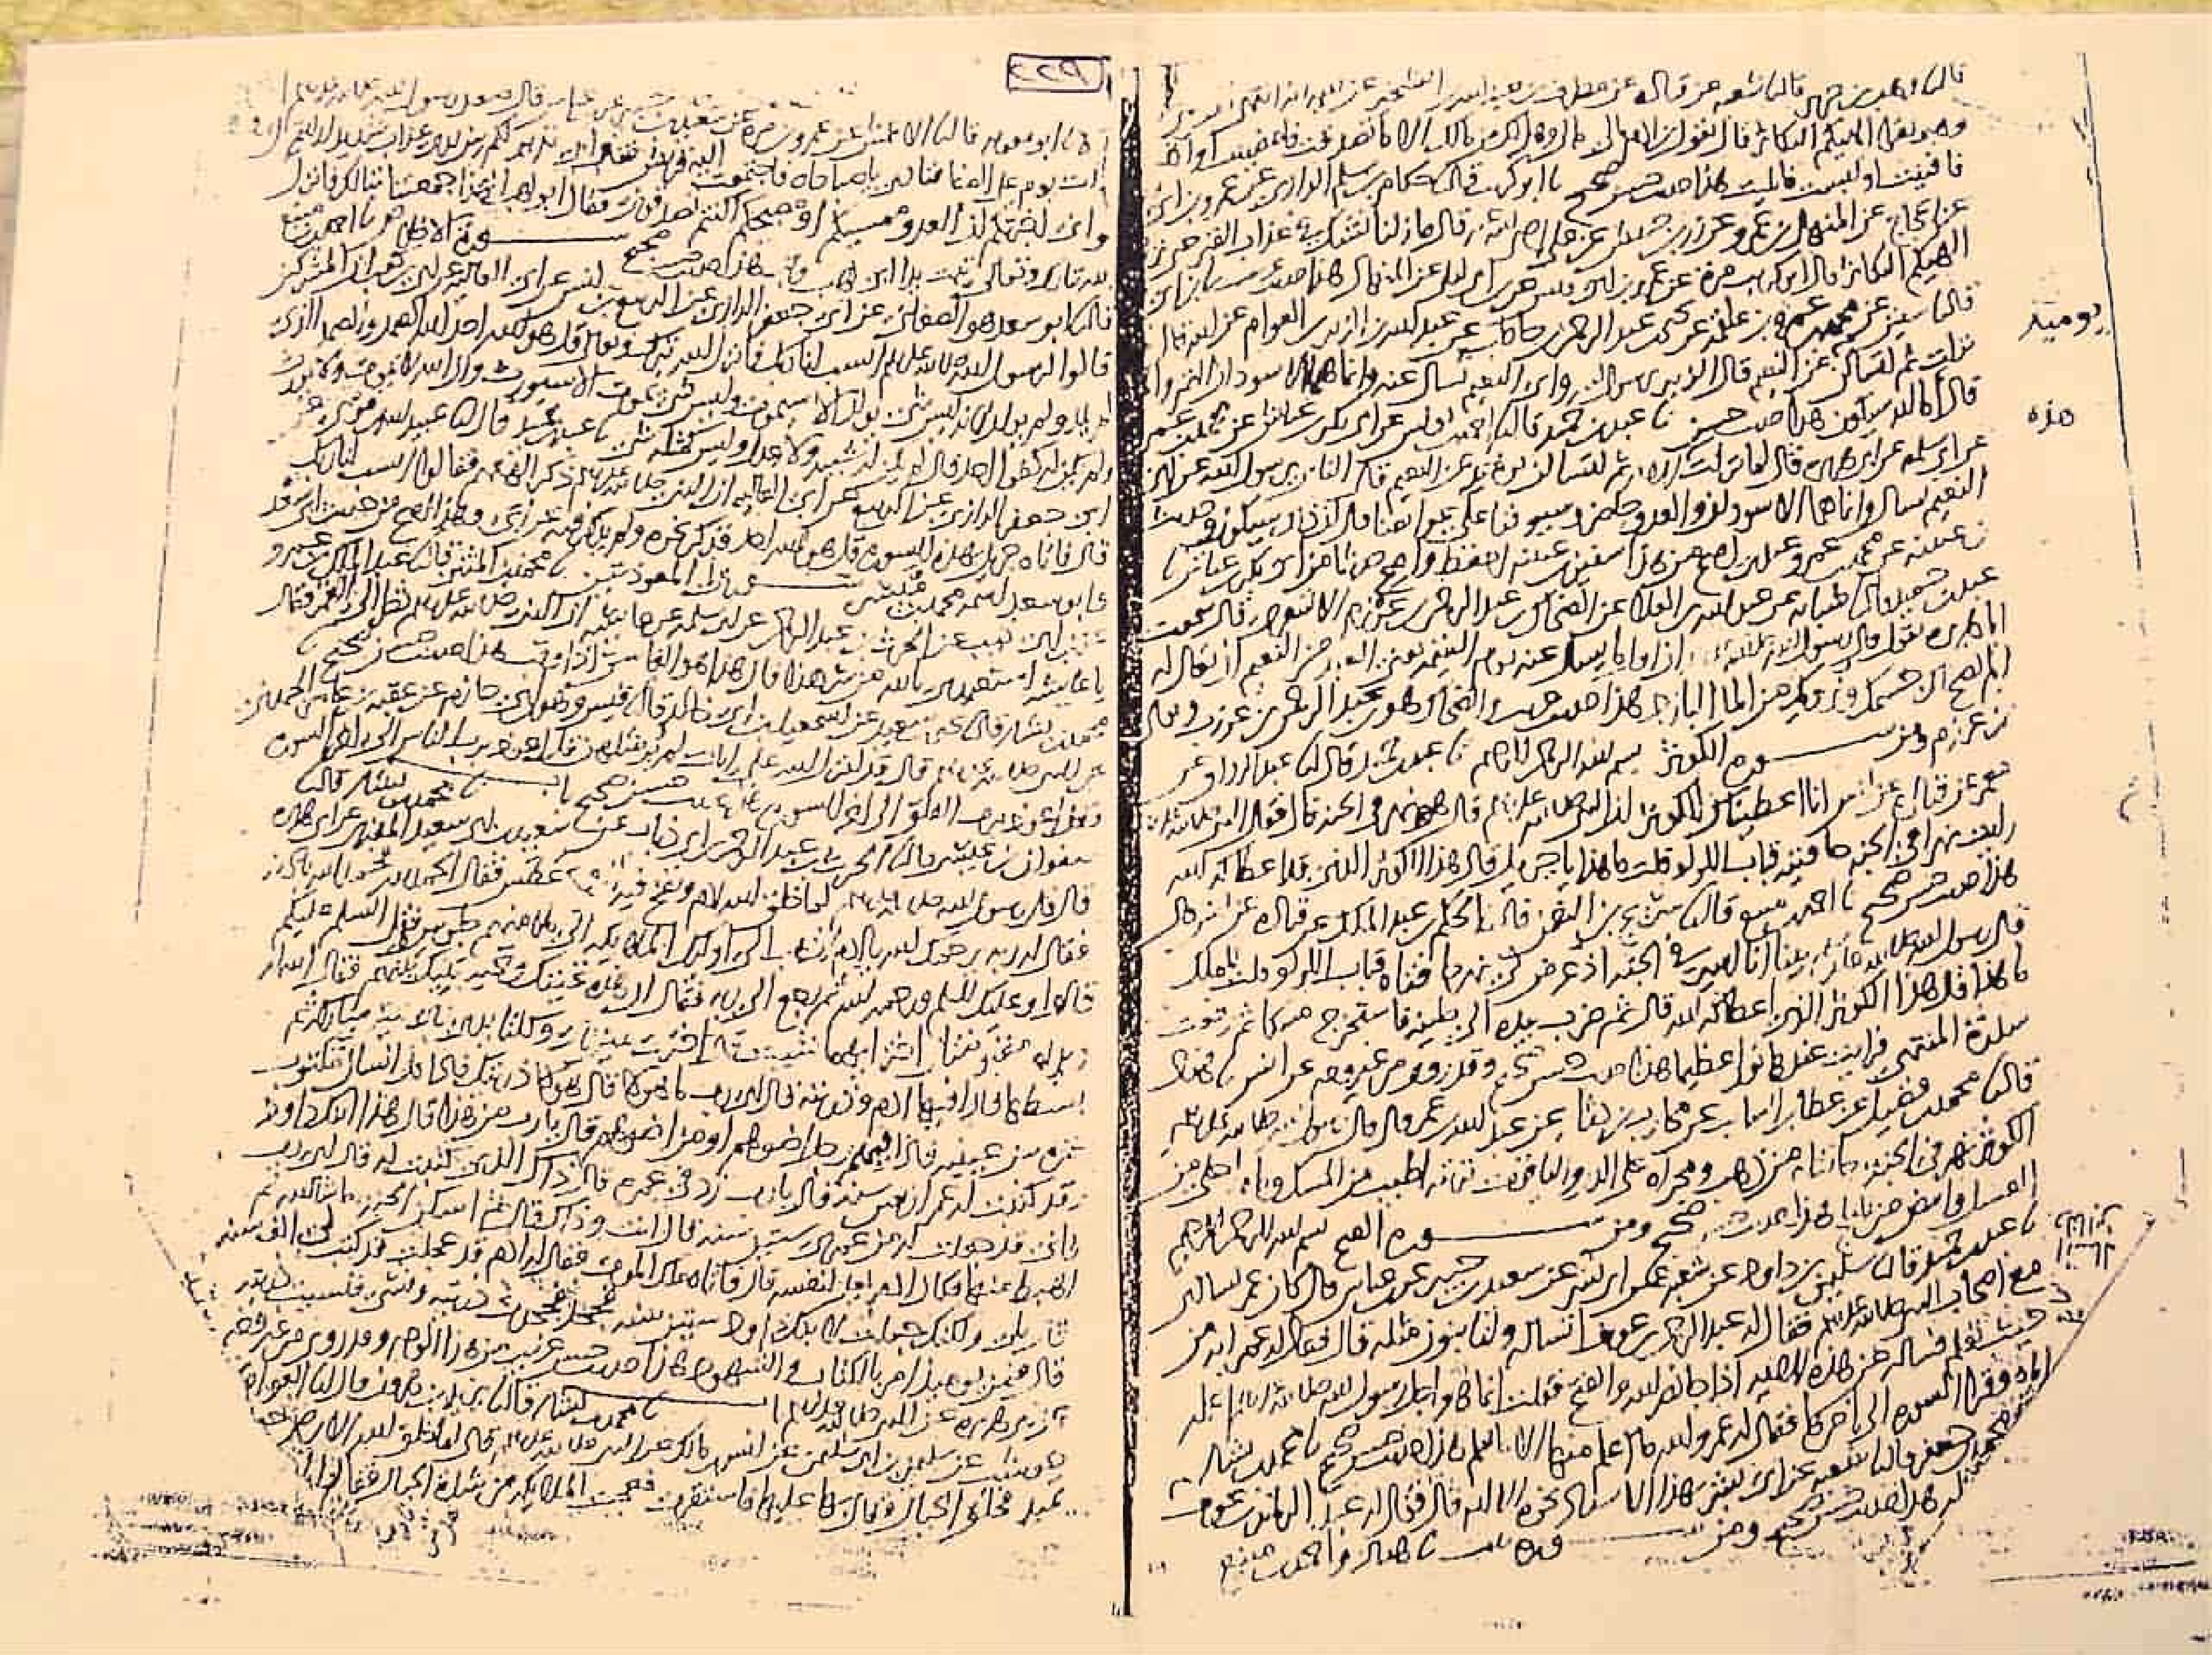 قال نا وهب بن جرير قال نا شعبة عن قتادة عن مطرف بن عبد الله بن الشخير عن ابيه انه انتهى الى
وهو يقرا الهيكم التكاثر قال يقول ابن ادم مالي مالي وهل لك من مالك الا ما تصدقت فامضيت او اكلت
فافنيت او لبست فابليت هذا حديث حسن صحيح نا ابو كريب قال نا حكام بن سلم الرازي عن عمرو بن ابي
عن الحجاج عن المنهال بن عمرو عن زر بن حبيش عن علي قال ما زلنا نشك في عذاب القبر حتى نزلت
الهيكم التكاثر قال ابو كريب مرة عن عمرو بن ابي قيس عن ابن ابي ليلى عن المنهال هذا حديث غريب نا ابن ابي
قال نا سفين عن محمد بن عمرو بن علقمة عن يحيى بن عبد الرحمن بن حاطب عن عبد الله بن الزبير بن العوام عن ابيه قال لما
نزلت ثم لتسالن عن النعيم قال الزبير يرسول الله واي النعيم نسال عنه وانما هما الاسودان التمر والما
قال اما انه سيكون هذا حديث حسن نا عبد بن حميد قال نا احمد بن يونس عن ابي بكر بن عياش عن محمد بن عمرو
عن ابي سلمة عن ابي هريرة قال لما نزلت الاية ثم لتسالن يوميذ عن النعيم قال الناس يرسول الله عن اي
النعيم نسال وانما هما الاسودان والعدو حاضر وسيوفنا على عواتقنا قال ان ذلك سيكون وحديث
بن عيينة عن محمد بن عمرو عندي اصح من هذا سفين بن عيينة احفظ واصح حديثا من ابي بكر بن عياش نا
عبد بن حميد قال نا شبابة عن عبد الله بن العلا عن الضحاك بن عبد الرحمن بن عرزم الاشعري قال سمعت
ابا هريرة يقول قال رسول الله ان اول ما يسال عنه يوم القيمة يعني العبد من النعيم ان يقال له
الم نصح لك جسمك ونرويك من الما البارد هذا حديث غريب والضحاك هو بن عبد الرحمن بن عرزب ويقال
بن عرزم ومن سورة الكوثر بسم الله الرحمن الرحيم نا عبد بن حميد قال نا عبد الرزاق عن
معمر عن قتادة عن انس انا اعطيناك الكوثر ان النبي صلى الله عليه وسلم قال هو نهر في الجنة قال فقال النبي صلى الله عليه
رايت نهرا في الجنة حافتيه قباب اللولو قلت ما هذا يا جبريل قال هذا الكوثر الذي قد اعطاكه الله
هذا حديث حسن صحيح نا احمد بن منيع قال نا سريج بن النعمن قال نا الحكم بن عبد الملك عن قتادة عن انس قال
قال رسول الله صلى الله عليه بينا انا اسير في الجنة اذ عرض لي نهر حافتاه قباب اللولو قلت للملك
ما هذا قال هذا الكوثر الذي اعطاكه الله قال ثم ضرب بيده الى طينه فاستخرج مسكا ثم رفعت
سدرة المنتهى فرايت عندها نورا عظيما هذا حديث حسن صحيح وقد روي من غير وجه عن انس نا هناد
قال نا محمد بن فضيل عن عطا بن السايب عن محارب بن دثار عن عبد الله بن عمر قال قال رسول الله صلى الله عليه
الكوثر نهر في الجنة حافتاه من ذهب ومجراه على الدر والياقوت تربته اطيب من المسك وماه احلى من
العسل وابيض من هذا حديث حسن صحيح ومن سورة الفتح بسم الله الرحمن الرحيم
نا عبد بن حميد قال نا سليمن بن داود عن شعبة عن ابي بشر عن سعيد بن جبير عن بن عباس قال كان عمر يسالني
مع اصحاب النبي صلى الله عليه وسلم فقال له عبد الرحمن بن عوف اتساله ولنا بنون مثله قال فقال له عمر انه من
حيث تعلم فساله عن هذه الاية اذا جا نصر الله والفتح فقلت انما هو اجل رسول الله صلى الله عليه اعلمه
اياه وقرا السورة الى اخرها فقال له عمر والله ما اعلم منها الا ما تعلم هذا حديث حسن صحيح نا محمد بن بشار
نا محمد بن جعفر قال نا شعبة عن ابي بشر بهذا الاسناد نحوه الا انه قال فقال له عبد الرحمن بن عوف
هذا حديث حسن صحيح ومن سورة تبت نا هناد واحمد بن منيع
يوميذ
هذه
٢٢٩
نا ابو معوية قال نا الاعمش عن عمرو بن مرة عن سعيد بن جبير عن بن عباس قال صعد رسول الله صلى الله عليه وسلم
ذات يوم على الصفا فنادى يا صباحاه فاجتمعت اليه قريش فقال اني نذير لكم بين يدي عذاب شديد ارايتم
لو اني اخبرتكم ان العدو ممسيكم او مصبحكم اكنتم تصدقوني فقال ابو لهب الهذا جمعتنا تبا لك فانزل
الله تبارك وتعالى تبت يدا ابي لهب وتب هذا حديث حسن صحيح سورة الاخلاص نا احمد بن منيع
قال نا ابو سعد هو الصغاني عن ابي جعفر الرازي عن الربيع بن انس عن ابي العالية عن ابي بن كعب ان المشركين
قالوا لرسول الله صلى الله عليه وسلم انسب لنا ربك فانزل الله تبارك وتعالى قل هو الله احد الله الصمد والصمد الذي
لم يلد ولم يولد لانه ليس شي يولد الا سيموت وليس شي يموت الا سيورث وان الله لا يموت ولا يورث
ولم يكن له كفوا احد قال لم يكن له شبيه ولا عدل وليس كمثله شي نا عبد بن حميد قال نا عبيد الله بن موسى عن
ابي جعفر الرازي عن الربيع عن ابي العالية ان النبي صلى الله عليه وسلم ذكر الهتهم فقالوا انسب لنا ربك
قال فاتاه جبريل بهذه السورة قل هو الله احد فذكر نحوه ولم يذكر فيه عن ابي وهذا اصح من حديث ابي سعد
وابو سعد اسمه محمد بن ميسر المعوذتين نا محمد بن المثنى قال نا عبد الملك بن عمرو
عن بن ابي ذيب عن الحرث بن عبد الرحمن عن ابي سلمة عن عايشة ان النبي صلى الله عليه وسلم نظر الى القمر فقال
يا عايشة استعيذي بالله من شر هذا فان هذا هو الغاسق اذا وقب هذا حديث حسن صحيح نا
محمد بن بشار قال نا يحيى بن سعيد عن اسمعيل بن ابي خالد قال نا قيس وهو بن ابي حازم عن عقبة بن عامر الجهني
عن النبي صلى الله عليه وسلم قال قد انزل الله علي ايات لم ير مثلهن قل اعوذ برب الناس الى اخر السورة
وقل اعوذ برب الفلق الى اخر السورة هذا حديث حسن صحيح باب نا محمد بن بشار قال نا
صفوان بن عيسى قال نا الحرث بن عبد الرحمن بن ابي ذباب عن سعيد بن ابي سعيد المقبري عن ابي هريرة
قال قال رسول الله صلى الله عليه وسلم لما خلق الله ادم ونفخ فيه الروح عطس فقال الحمد لله فحمد الله باذنه
فقال له ربه يرحمك الله يا ادم اذهب الى اوليك الملايكة الى ملا منهم جلوس فقل السلم عليكم
قالوا وعليك السلم ورحمة الله ثم رجع الى ربه فقال ان هذه تحيتك وتحية بنيك بينهم فقال الله له
ويداه مقبوضتان اختر ايهما شيت قال اخترت يمين ربي وكلتا يدي ربي يمين مباركة ثم
بسطها فاذا فيها ادم وذريته فقال اي رب ما هولا قال هولا ذريتك فاذا كل انسان مكتوب
عمره بين عينيه فاذا فيهم رجل اضوهم او من اضوهم قال يا رب من هذا قال هذا ابنك داود
وقد كتبت له عمر اربعين سنة قال يا رب زد في عمره قال ذاك الذي كتبت له قال اي رب
فاني قد جعلت له من عمري ستين سنة قال انت وذاك قال ثم اسكن الجنة ما شا الله ثم
اهبط منها فكان ادم يعد لنفسه قال فاتاه ملك الموت فقال له ادم قد عجلت قد كتب لي الف سنة
قال بلى ولكنك جعلت لابنك داود ستين سنة فجحد فجحدت ذريته ونسي فنسيت ذريته
قال فمن يوميذ امر بالكتاب والشهود هذا حديث حسن غريب من هذا الوجه وقد روي من غير وجه
عن ابي هريرة عن النبي صلى الله عليه وسلم باب نا محمد بن بشار قال نا يزيد بن هرون قال نا العوام
بن حوشب عن سليمن بن ابي سليمن عن انس بن مالك عن النبي صلى الله عليه وسلم قال لما خلق الله الارض جعلت
تميد فخلق الجبال وقال بها عليها فاستقرت فعجبت الملايكة من شدة الجبال فقالوا